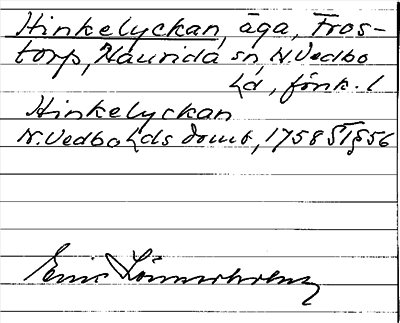 Hinkelyckan, äga, Fros-
torp, Haurida sn, N. Vedbo
hd, Jönk. l
Hinkelyckan
N. Vedbo hds domb, 1758 ST § 56